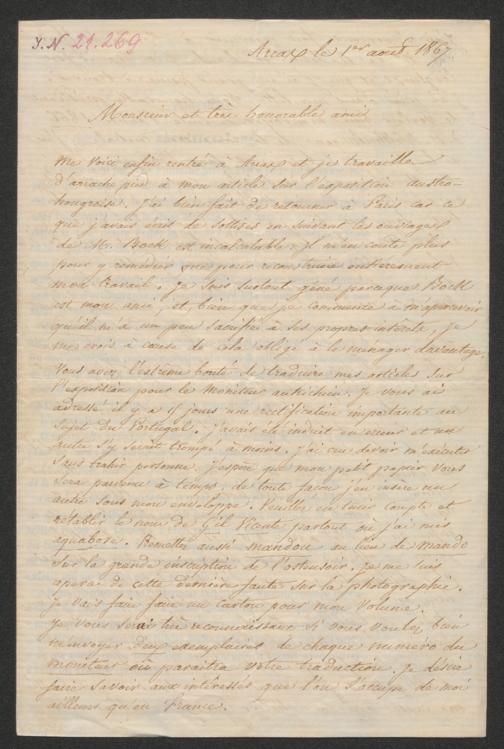 J.N. 21.269
le 1er août 1867
Monsieur et très honorable ami
Me voici enfin rentré à et je travaille
d'arrache pié à mon article sur l'exposition austro-
hongroise. J'ai bien fait de retourner à Paris car ce
que j'avais écrit de sottises en suivant les ouvrages
de M. Bock est incalculable. Il m'en coute plus
pour y remédier que pour reconstruire entièrement
mon travail. Je suis surtout gêné parceque Bock
est mon ami, et, bien que je commence à m'apercevoir
qu'il m'a un peu sacrifié à ses propres intérêts, je
me crois à cause de cela obligé à le ménager davantage.
Vous avez l'extrême bonté de traduire mes articles sur
l'exposition pour le Moniteur autrichien. Je vous ai
adressé il y a jours une rectification importante au
sujet du Portugal. J'avais été induit en erreur et un
autre s'y serait trompé à moins. J'ai cru devoir m'exécuter
sans trahir personne. J'espère que mon petit papier vous
sera parvenu à temps, de toute façon j'en insère un
autre sous mon enveloppe. Veuillez en tenir compte et
rétablir le nom de Gil Vicente partout où j'ai mis
. Remettez aussi mandou au lieu de mando
sur la grande inscription de l'ostensoir. Je me suis
aperçu de cette dernière faute sur la photographie.
Je vais faire faire un carton pour mon volume.
Je vous serai très reconnaissant si vous voulez bien
m'envoyer deux exemplaires de chaque numéro du
moniteur où paraitra votre traduction. Je désire
faire savoir aux intéressés que l'on s'occupe de moi
ailleurs qu'en France.